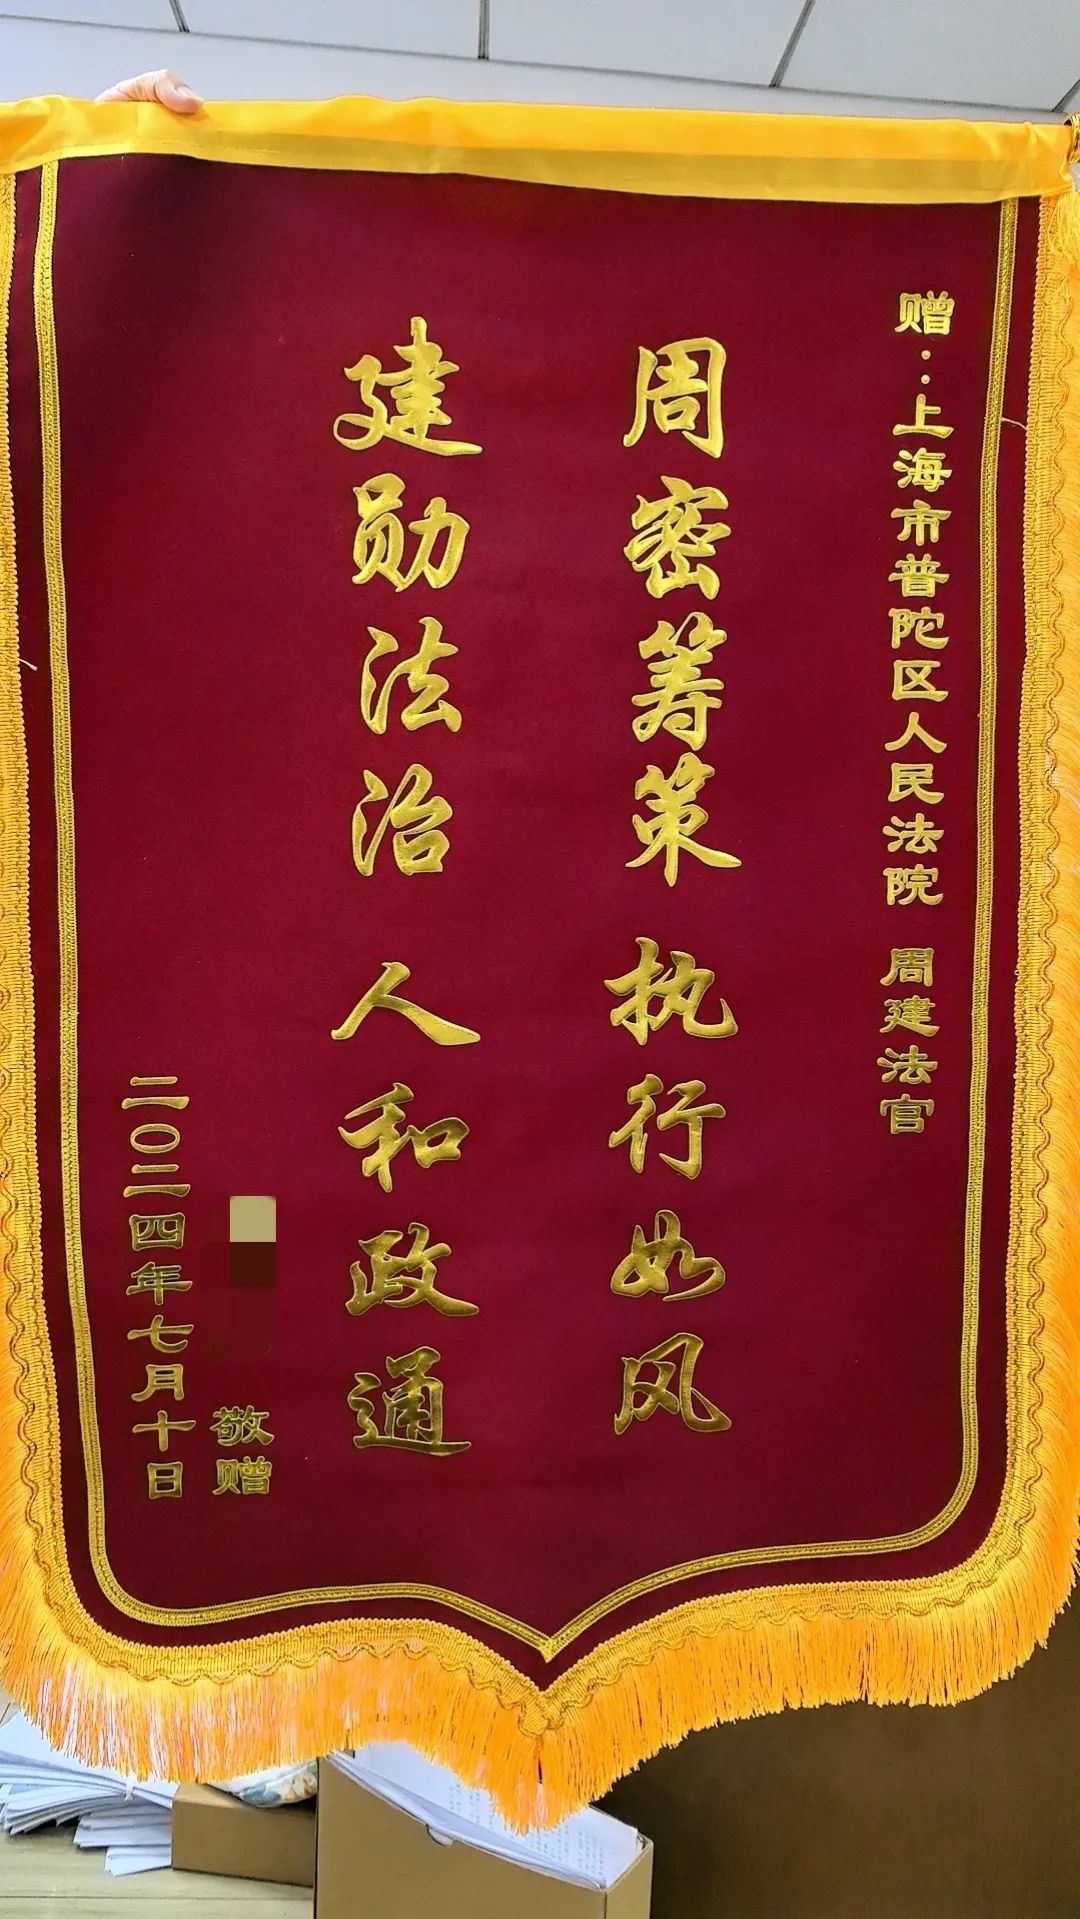 赠：上海市普陀区人民法院 周建法官
周密筹策 执行如风
建勋法治 人和政通
敬赠
二〇二四年七月十日